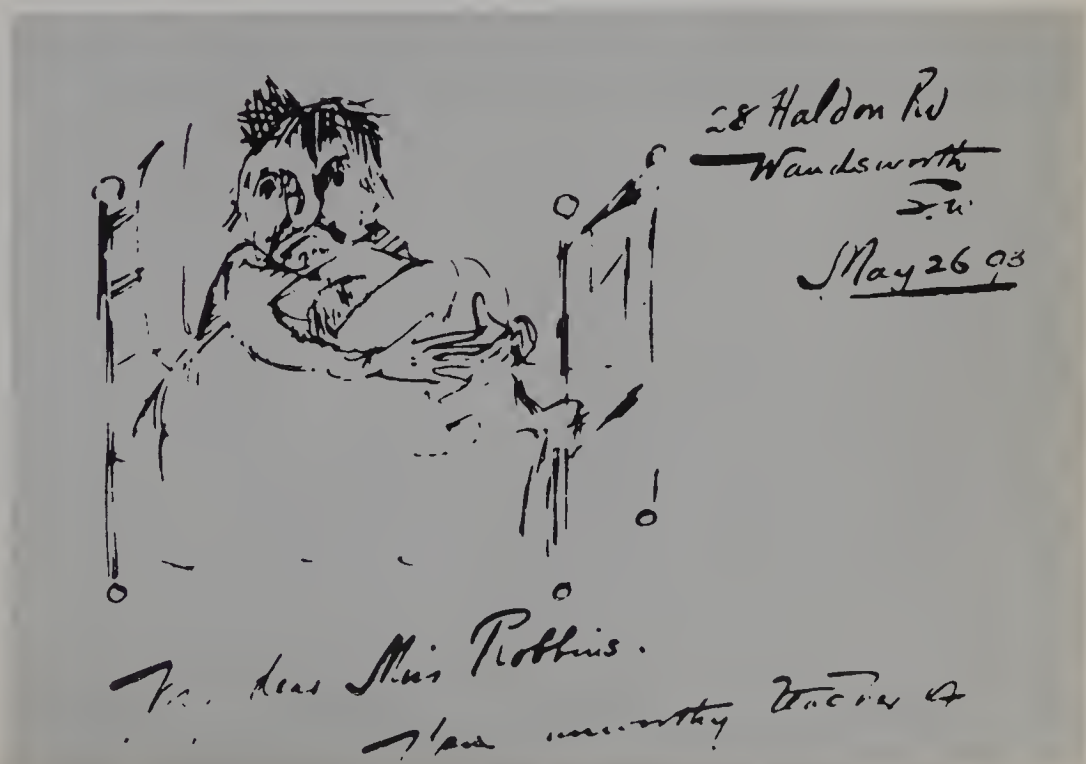 28 Haldon Rd
Wandsworth
S.W.
May 26 93
My dear Miss Robbins.
unworthy